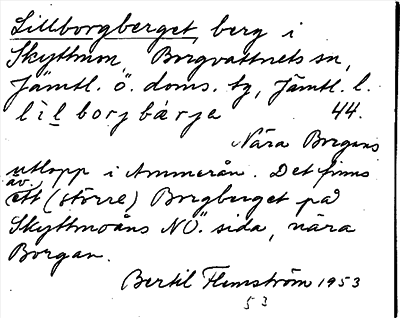 Lillborgberget, berg i
Skyttmon, Borgvattnets sn,
Jämtl. ö. doms. tg, Jämtl. l.
lìl borjbárje 44.
Nära Borgans
utlopp i Ammerån. Det finns
äv.
ett (större) Borgberget på
Skyttmoåns NÖ. sida, nära
Borgan.
Bertil Flemström 1953
53